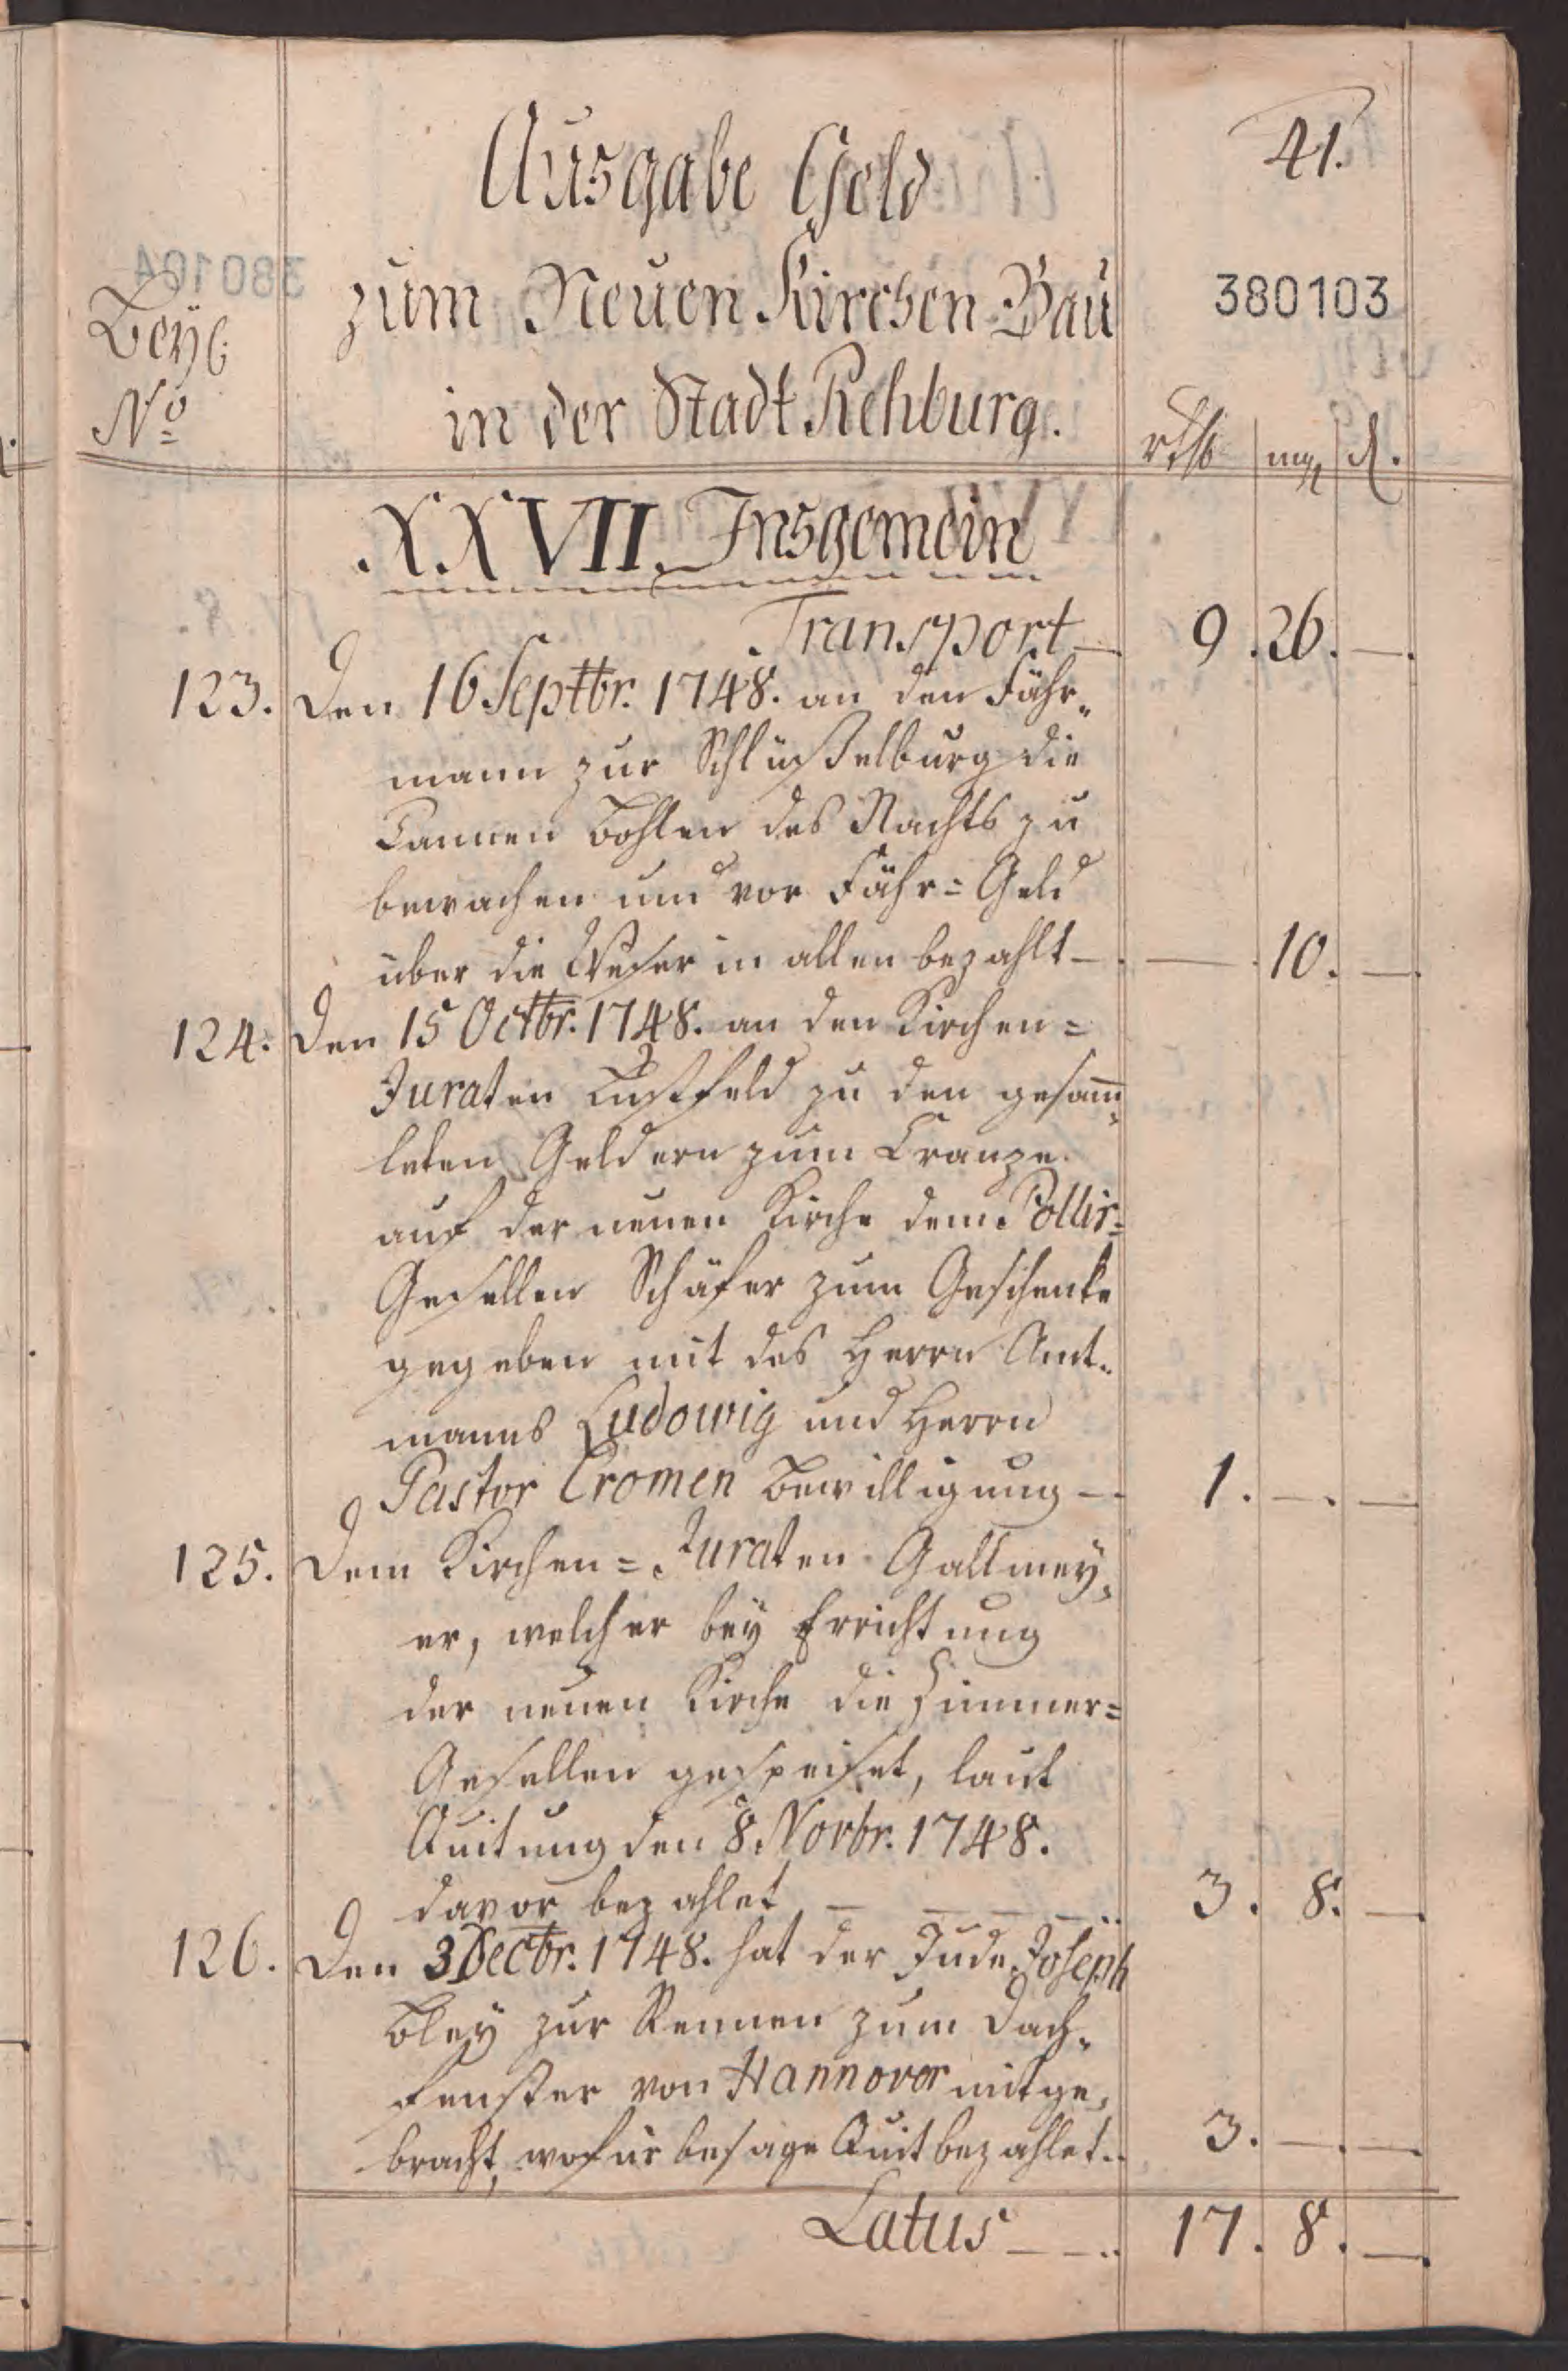 41.
Ausgabe Geld
380103
zum Neuen Kirchen Bau
Beyl.
No
in der Stadt Rehburg.
rthl mg d.
XXVII. Insgemein
Transport — 9. 26. —.
123. Den 16 Septbr. 1748. an den Fähr-
mann zur Schlüßelburg die
Tannen Bohlen des Nachts zu
bewachen und vor Fähr= Geld
über die Weser in allen bezahlt — — 10. —.
124. Den 15 Octbr. 1748. an den Kirchen=
Juraten Lustfeld zu den gesamm-
leten Geldern zum Cranze
auf der neuen Kirche dem Pollir=
Gesellen Schäfer zum Geschenke
gegeben mit des Herrn Amt-
manns Ludowig und Herrn
Pastor Cromen Bewilligung — 1. —. —
125. Dem Kirchen= Juraten Gallmey-
er, welcher bey Errichtung
der neuen Kirche die Zimmer=
Gesellen gespeiset, laut
Quitung den 8. Novbr. 1748.
davor bezahlet — — — — 3. 8. —.
126. Den 3 Decbr. 1748. hat der Jude Joseph
Bley zur Rennen zum Dach-
fenster von Hannover mitge-
bracht, wofür besage Quit bezahlet.. 3. —. —.
Latus — — .. 17. 8. —.